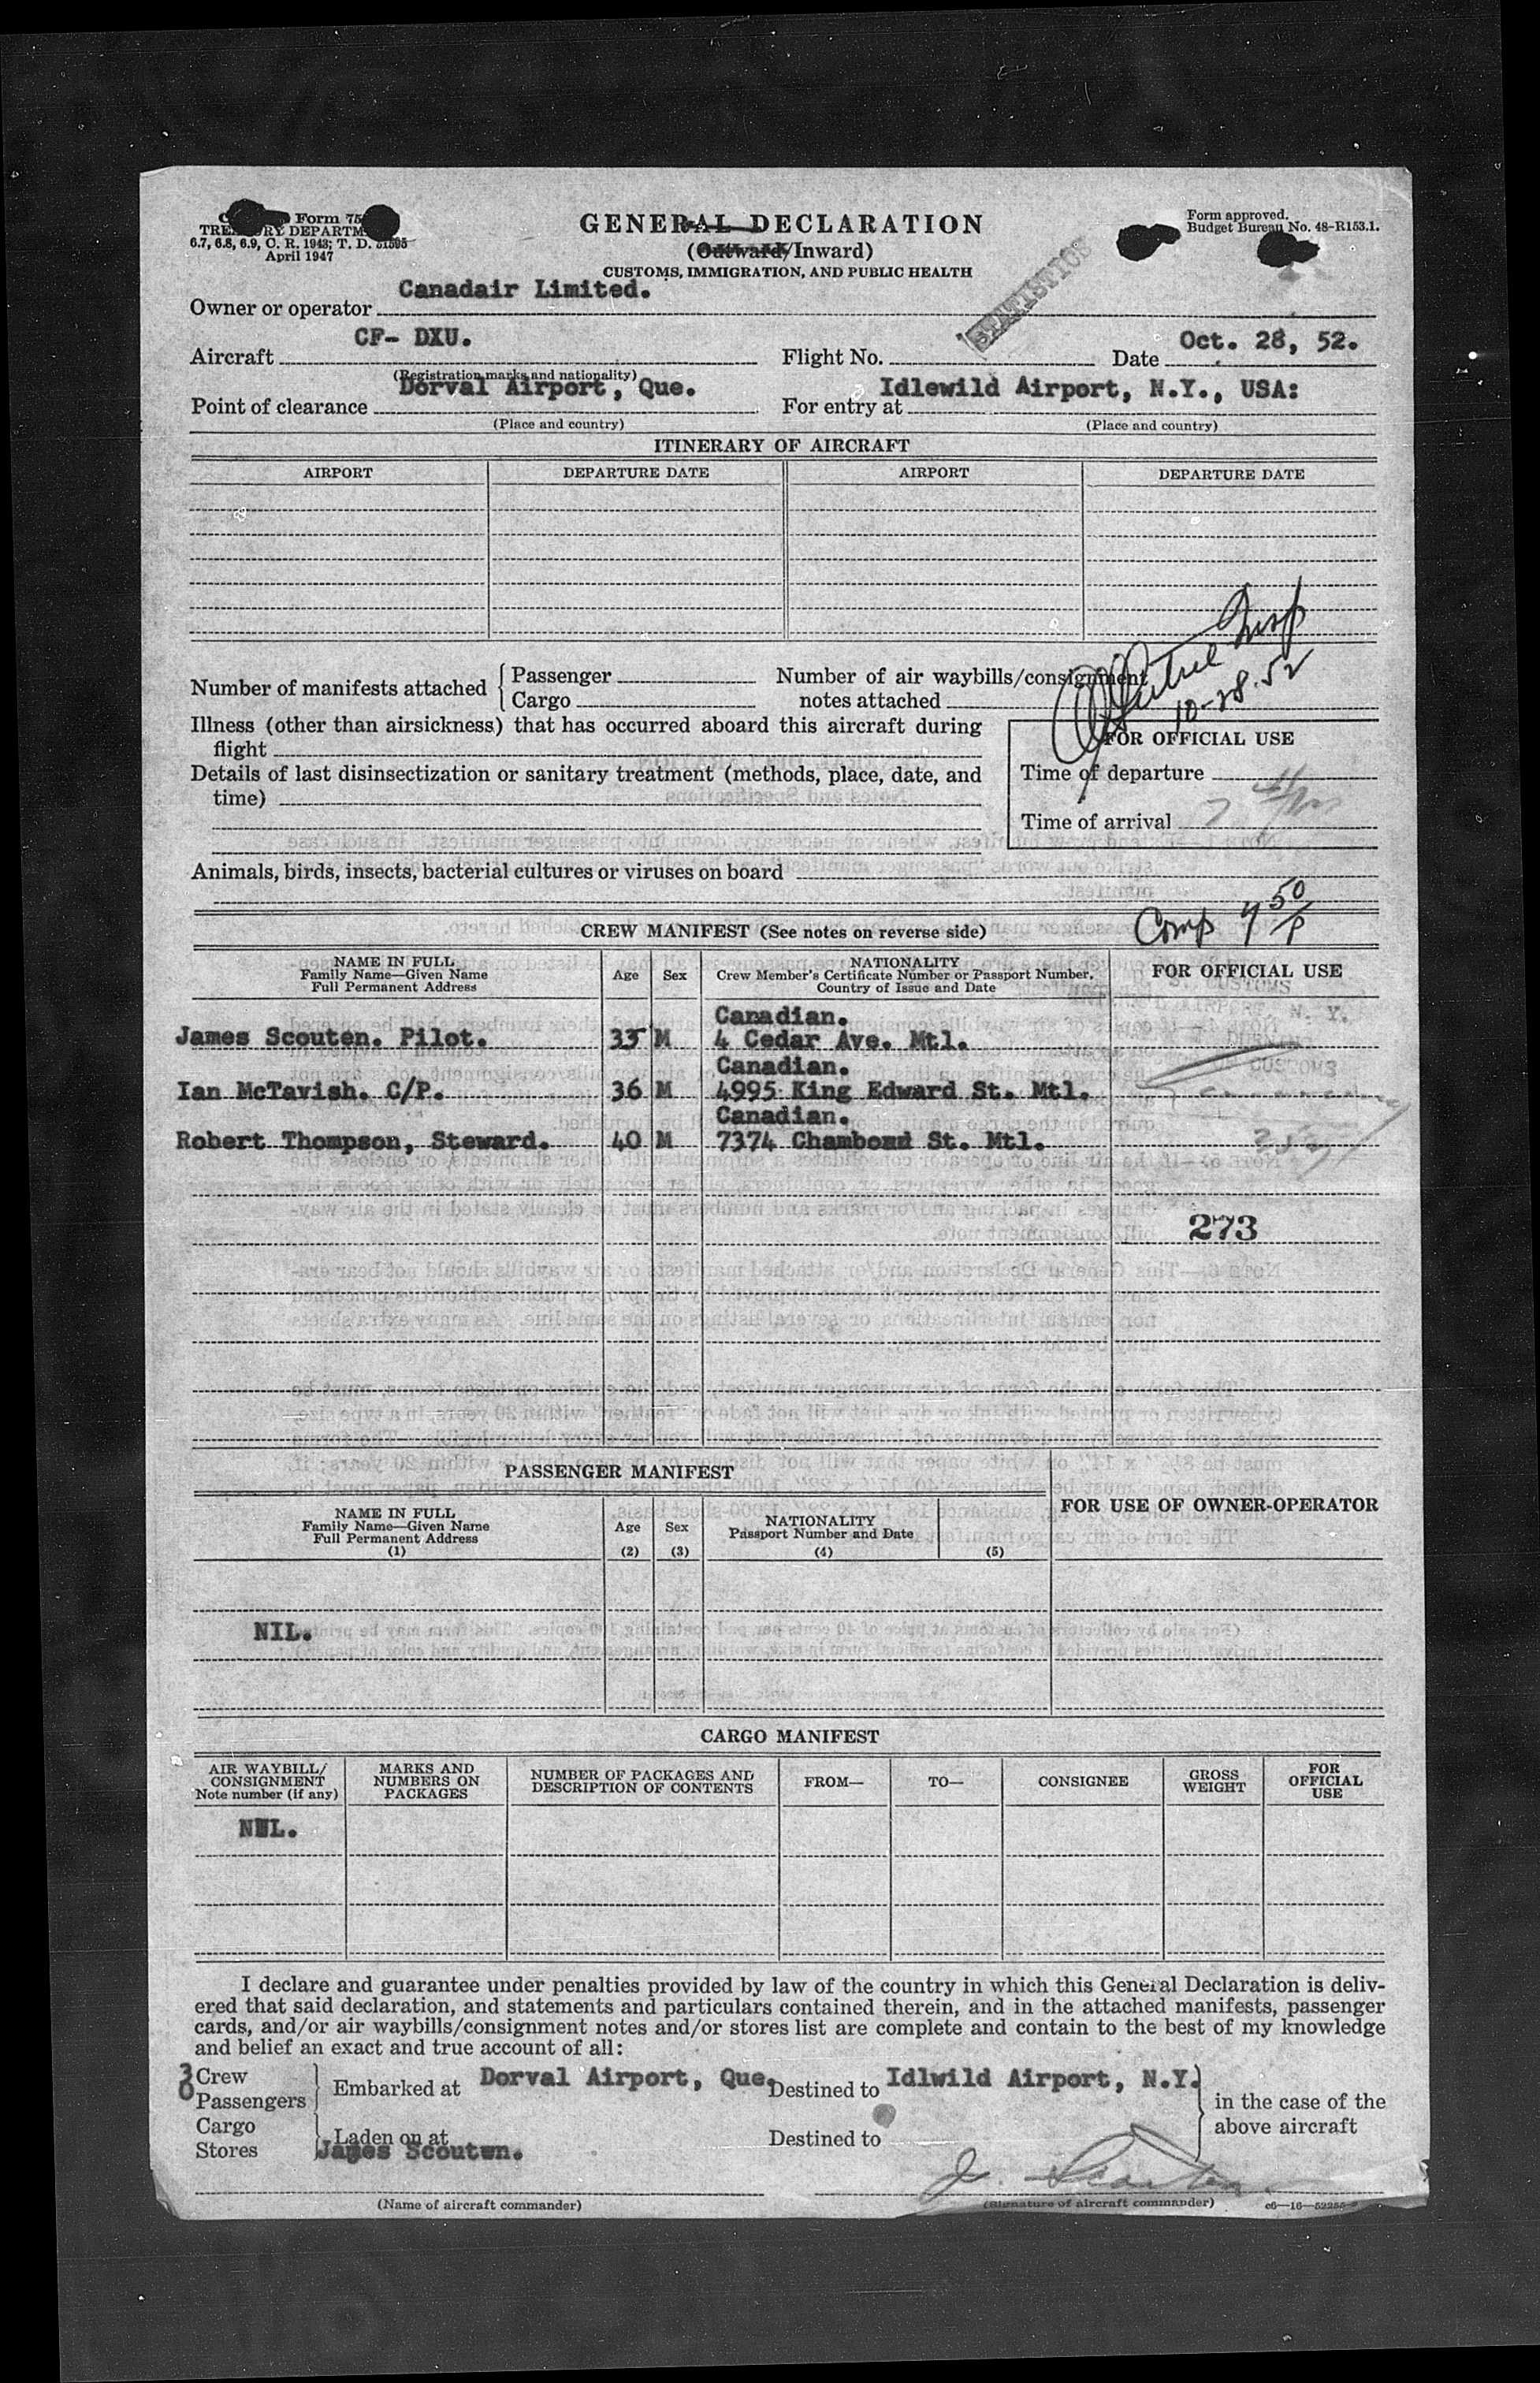 Form 75
GENERAL DECLARATION
Form approved.
TREASURY DEPARTM
Budget Bureau No. 48-R153.1.
6.7, 6.8, 6.9, C. R. 1943; T. D. 51595
(Outward/Inward)
April 1947
CUSTOMS, IMMIGRATION, AND PUBLIC HEALTH
STATISTICS
Owner or operator Canadair Limited.
Aircraft CF- DXU. Flight No. Date Oct. 28, 52.
(Registration marks and nationality)
Point of clearance Dorval Airport, Que. For entry at Idlewild Airport, N.Y., USA:
(Place and country) (Place and country)
ITINERARY OF AIRCRAFT
AIRPORT DEPARTURE DATE AIRPORT DEPARTURE DATE
Insp
10-28-52
Number of manifests attached { Passenger Number of air waybills/consignment
Cargo notes attached
Illness (other than airsickness) that has occurred aboard this aircraft during
flight
FOR OFFICIAL USE
Details of last disinsectization or sanitary treatment (methods, place, date, and
time)
Time of departure
Time of arrival 7
Animals, birds, insects, bacterial cultures or viruses on board
Comp 7 50/P
CREW MANIFEST (See notes on reverse side)
NAME IN FULL
Family Name—Given Name
Full Permanent Address
Age Sex
NATIONALITY
Crew Member's Certificate Number or Passport Number,
Country of Issue and Date
FOR OFFICIAL USE
Canadian.
James Scouten. Pilot. 35 M 4 Cedar Ave. Mtl.
Canadian.
Ian McTavish. C/P. 36 M 4995 King Edward St. Mtl.
Canadian.
Robert Thompson, Steward. 40 M 7374 Chambord St. Mtl.
273
PASSENGER MANIFEST
NAME IN FULL
Family Name—Given Name
Full Permanent Address
(1)
Age
(2)
Sex
(3)
NATIONALITY
Passport Number and Date
(4) (5)
FOR USE OF OWNER-OPERATOR
NIL.
CARGO MANIFEST
AIR WAYBILL/
CONSIGNMENT
Note number (if any)
MARKS AND
NUMBERS ON
PACKAGES
NUMBER OF PACKAGES AND
DESCRIPTION OF CONTENTS
FROM—
TO—
CONSIGNEE
GROSS
WEIGHT
FOR
OFFICIAL
USE
NIL.
I declare and guarantee under penalties provided by law of the country in which this General Declaration is deliv-
ered that said declaration, and statements and particulars contained therein, and in the attached manifests, passenger
cards, and/or air waybills/consignment notes and/or stores list are complete and contain to the best of my knowledge
and belief an exact and true account of all:
3 Crew
0 Passengers } Embarked at Dorval Airport, Que. Destined to Idlwild Airport, N.Y. } in the case of the
above aircraft
Cargo
Stores } Laden on at Destined to
James Scouten. J. Scouten
(Name of aircraft commander) (Signature of aircraft commander) c6—16—52255-